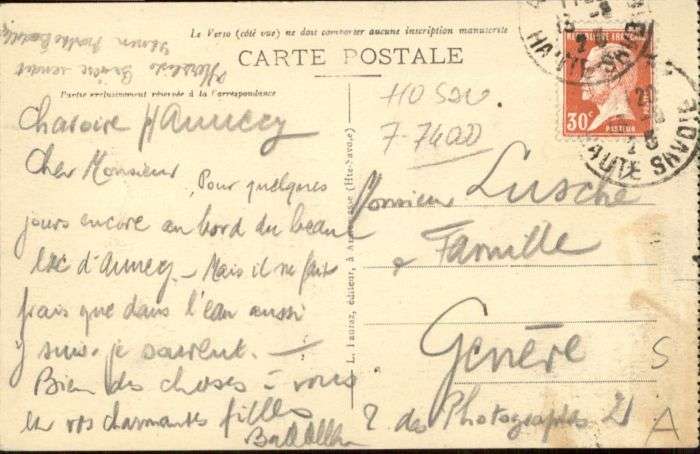 Le Verso (côté vue) ne doit comporter aucune inscription manuscrite
CARTE POSTALE
Partie exclusivement réservée à la Correspondance
Chavoire p/Annecy
Cher Monsieur
Pour quelques
jours encore au bord du beau
lac d'Annecy - Mais il ne fait
frais que dans l'eau aussi
y suis-je souvent. —
Bien des choses à vous
et vos charmantes filles
L. Fauraz, éditeur, à Annemasse (Hte-Savoie)
110 Sav
7-7400
Monsieur Lusche
& Famille
Genève
R. des Photographes 21
S
A
REPUBLIQUE FRANÇAISE
30c
POSTES
PASTEUR
HAUTE SAVOIE
HAUTE SAVOIE